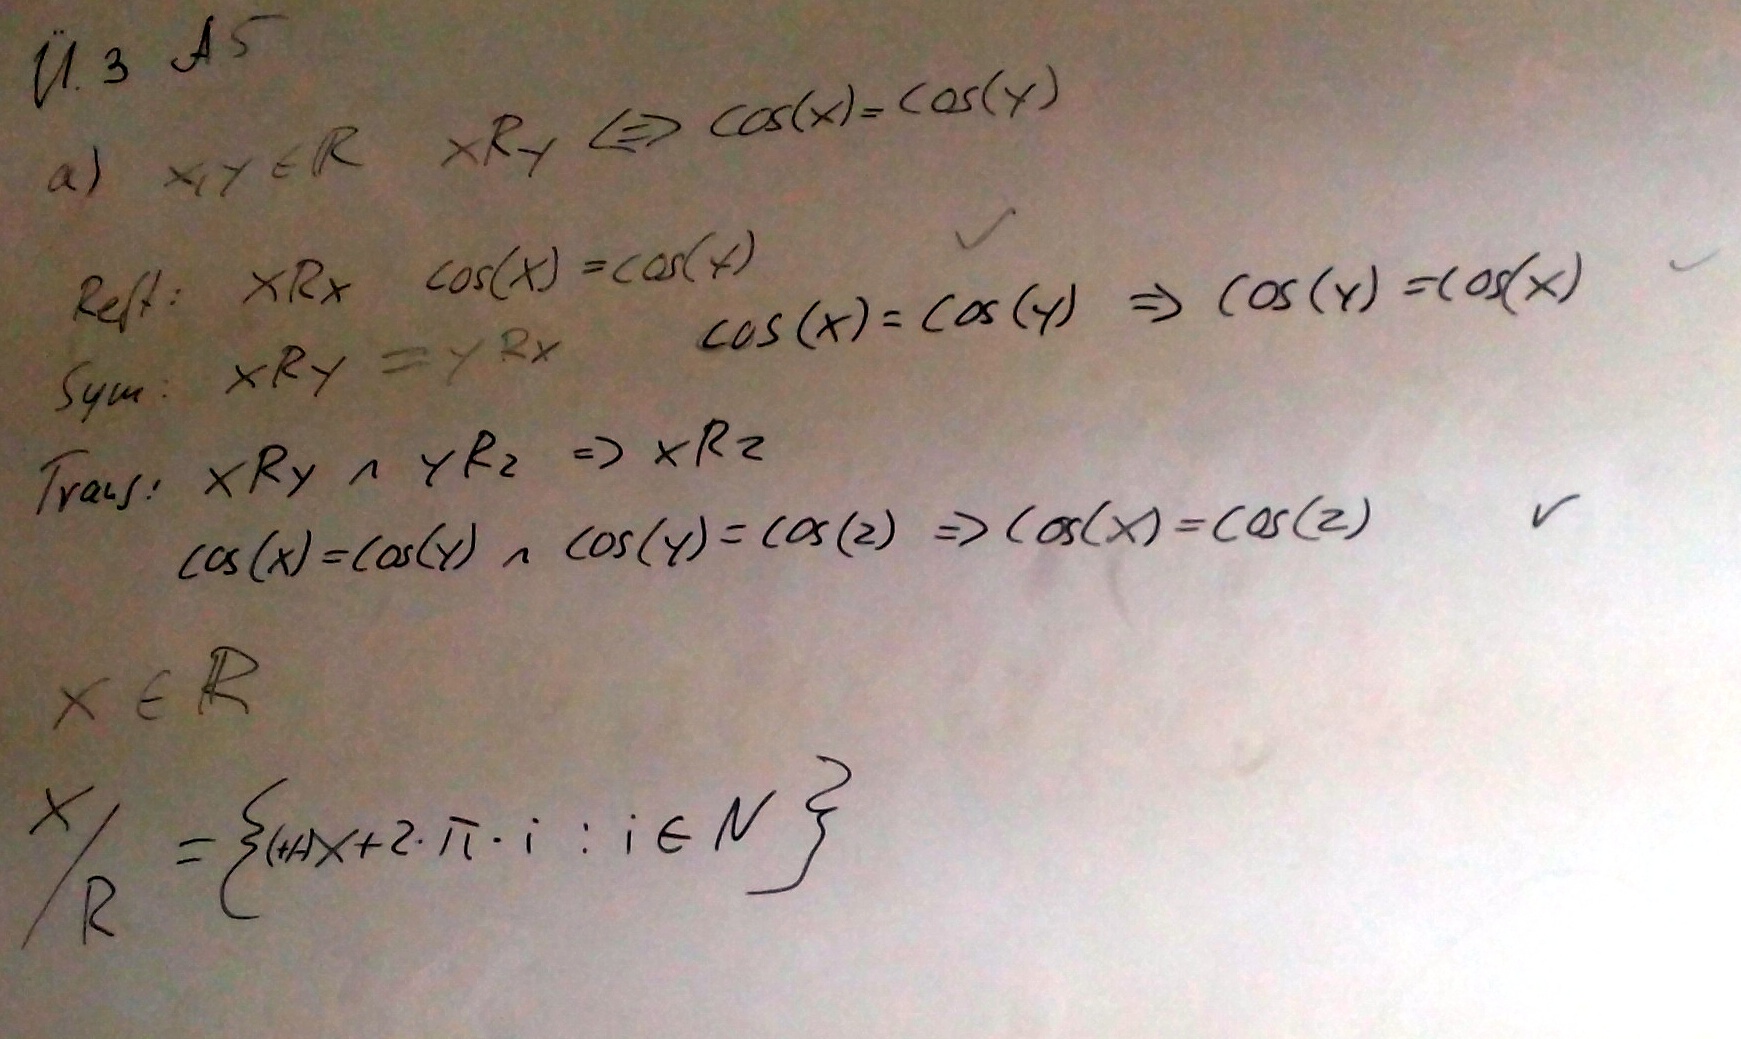 Ü. 3 A5
a) x,y ∈ ℝ xRy <=> cos(x)=cos(y)
Refl: xRx cos(x)=cos(x) ✓
Sym: xRy = yRx cos(x)=cos(y) => cos(y)=cos(x) ✓
Trans: xRy ∧ yRz => xRz
cos(x)=cos(y) ∧ cos(y)=cos(z) => cos(x)=cos(z) ✓
x ∈ ℝ
x/R = { x+2·π·i : i ∈ N }